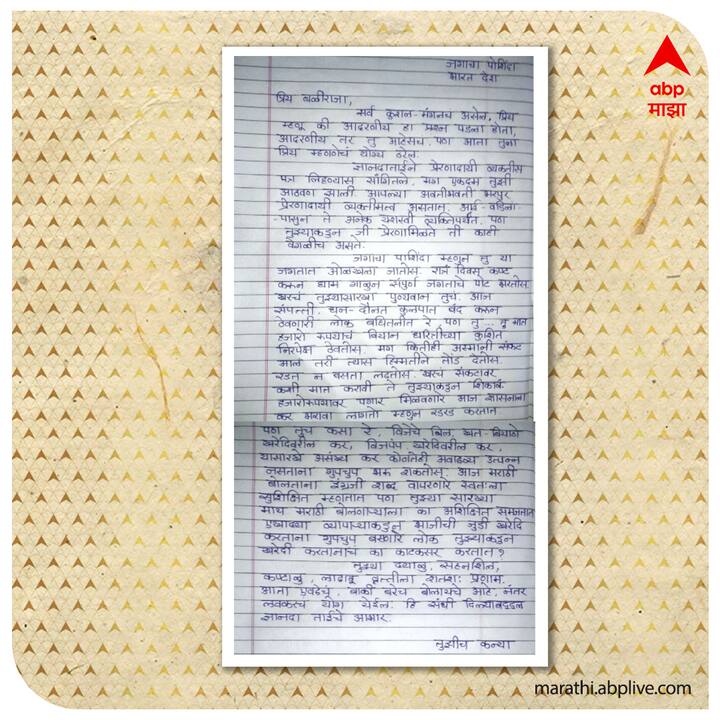 जगाचा पोशिंदा
भारत देश
abp
माझा
प्रिय बळीराजा,
सर्व कुशल-मंगलच असेन. प्रिय
म्हणू की आदरणीय हा प्रश्न पडला होता,
आदरणीय तर तु आहेसच. पण आता तुला
प्रिय म्हणणेचं योग्य ठरेल.
ज्ञानदाताईने प्रेरणादायी व्यक्तीस
पत्र लिहण्यास सांगितले. मग एकदम तुझी
आठवण झाली आपल्या अवतीभवती भरपुर
प्रेरणादायी व्यक्तीमत्व असतात. आई वडिलां-
-पासुन ते अनेक यशस्वी व्यक्तिपर्यंत. पण
तुझ्याकडुन जी प्रेरणामिळते ती काही
वेगळीच असते.
जगाचा पोशिंदा म्हणुन तु या
जगतात ओळखला जातोस. रात्रं दिवस कष्ट
करून घाम गाळुन संपुर्ण जगताचे पोट भरतोस.
खरचं तुझ्यासारखा पुण्यवान तुच. आज
संपत्ती, धन-दौलत कुलपात बंद करुन
ठेवणारी लोक बघितलीत रे, पण तु
हजारो रुपयाचं बियाण धरितीच्या कुशित
निरपेक्ष ठेवतोस. मग कितीही अस्मानी संकट
आलं तरी त्यास हिम्मतीने तोंड देतोस.
रडत न बसता लढतोस. खरचं संकटावर
कशी मात करावी ते तुझ्याकडुन शिकावं.
हजारोरुपयावर पगार मिळवणारे आज शासनाला
कर भरावा लागतो म्हणुन रडरड करतात
पण तुच कसा रे, विजेचे बिल, खत-बियाणे
खरेदिवरील कर, विजपंप खरेदिवरील कर,
यासारखे असंख्य कर कोणतेही अवाढव्य उत्पन्न
नसताना गुपचुप भरु शकतोस. आज मराठी
बोलताना इंग्रजी शब्द वापरणारे स्वतःला
सुशिक्षित म्हणतात पण तुझ्या सारख्या
माय मराठी बोलणाऱ्याला का अशिक्षित समजतात
एखाद्या व्यापाऱ्याकडुन भाजीची जुडी खरेदि
करताना गुपचुप बसणारे लोक तुझ्याकडुन
खरेदी करतानाच का काटकसर करतात ?
तुझ्या दयाळु, सहनशिल,
कष्टाळु, लाढावू वृत्तीला शतशः प्रणाम.
आता एवढेचं, बाकी बरेच बोलायचे आहे, नंतर
लवकरच योग येईल. हि संधी दिल्याबद्दुदल
ज्ञानदा ताईचे आभार.
तुझीच कन्या
marathi.abplive.com